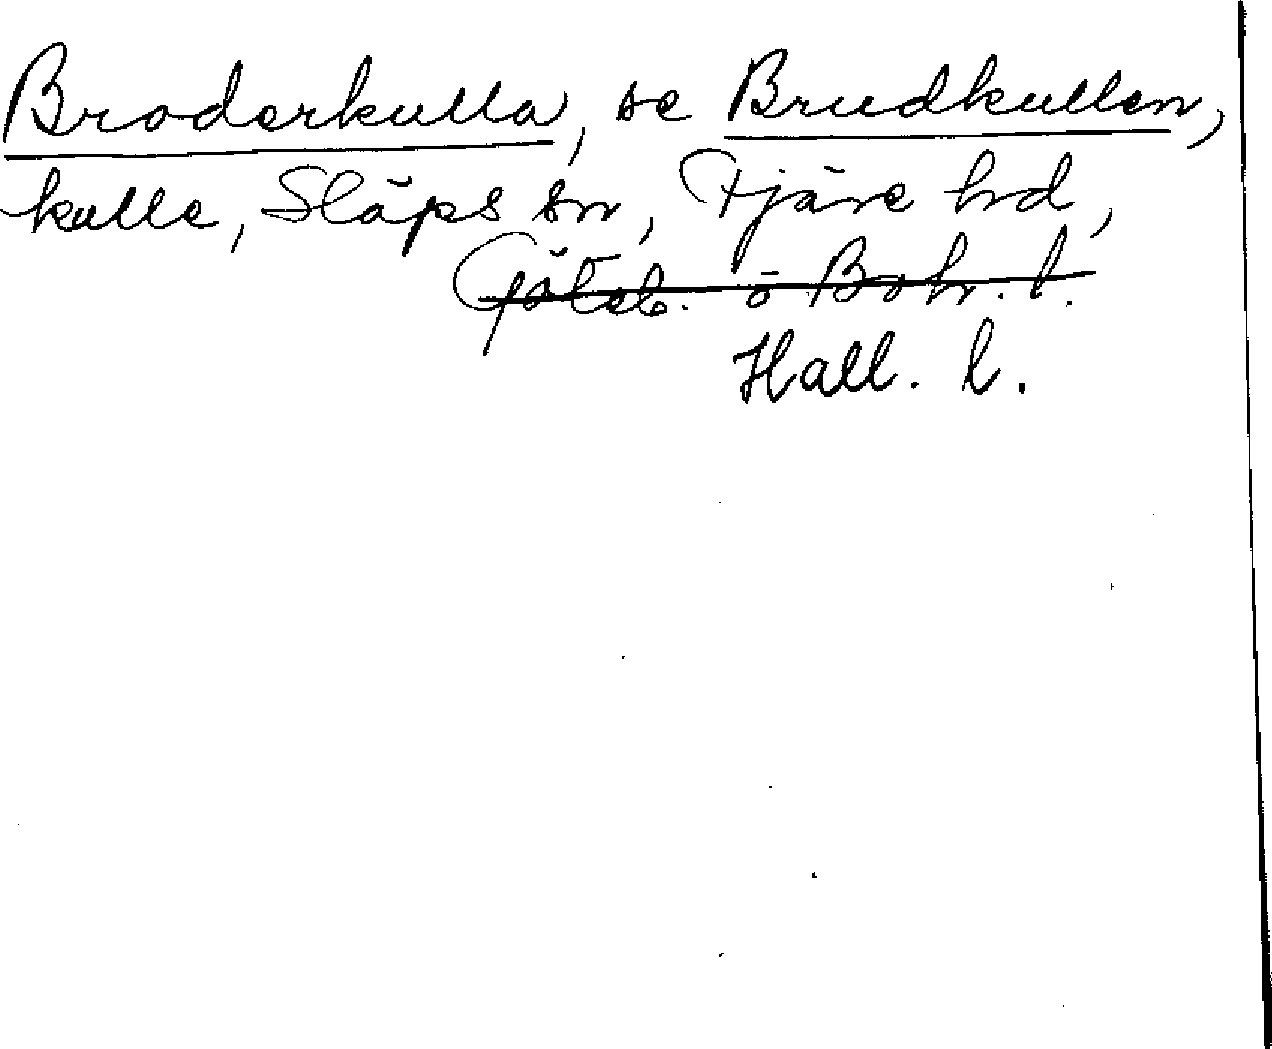 Broderkulla, se Brudkullen,
kulle, Släps sn, Fjäre hd,
Göteb. o Boh. l.
Hall. l.